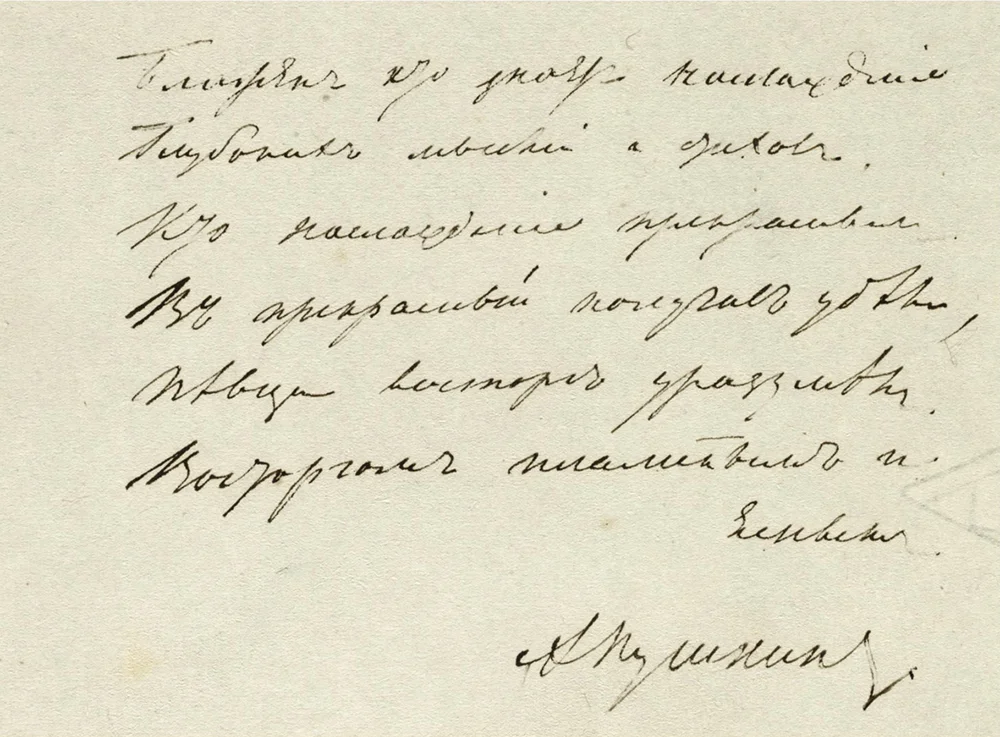 Блаженъ кто знаетъ наслажденіе
Глубокихъ мыслей и стиховъ.
Кто наслажденіе прекраснымъ
Въ прекрасный получилъ удѣлъ,
Пѣвца восторгъ уразумѣлъ
Восторгомъ пламеннымъ и
яснымъ.
АПушкинъ